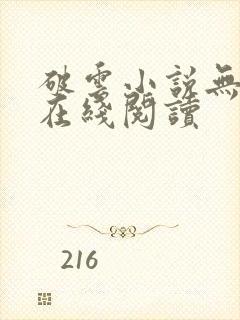 破雲小説無
在綫閱讀
216